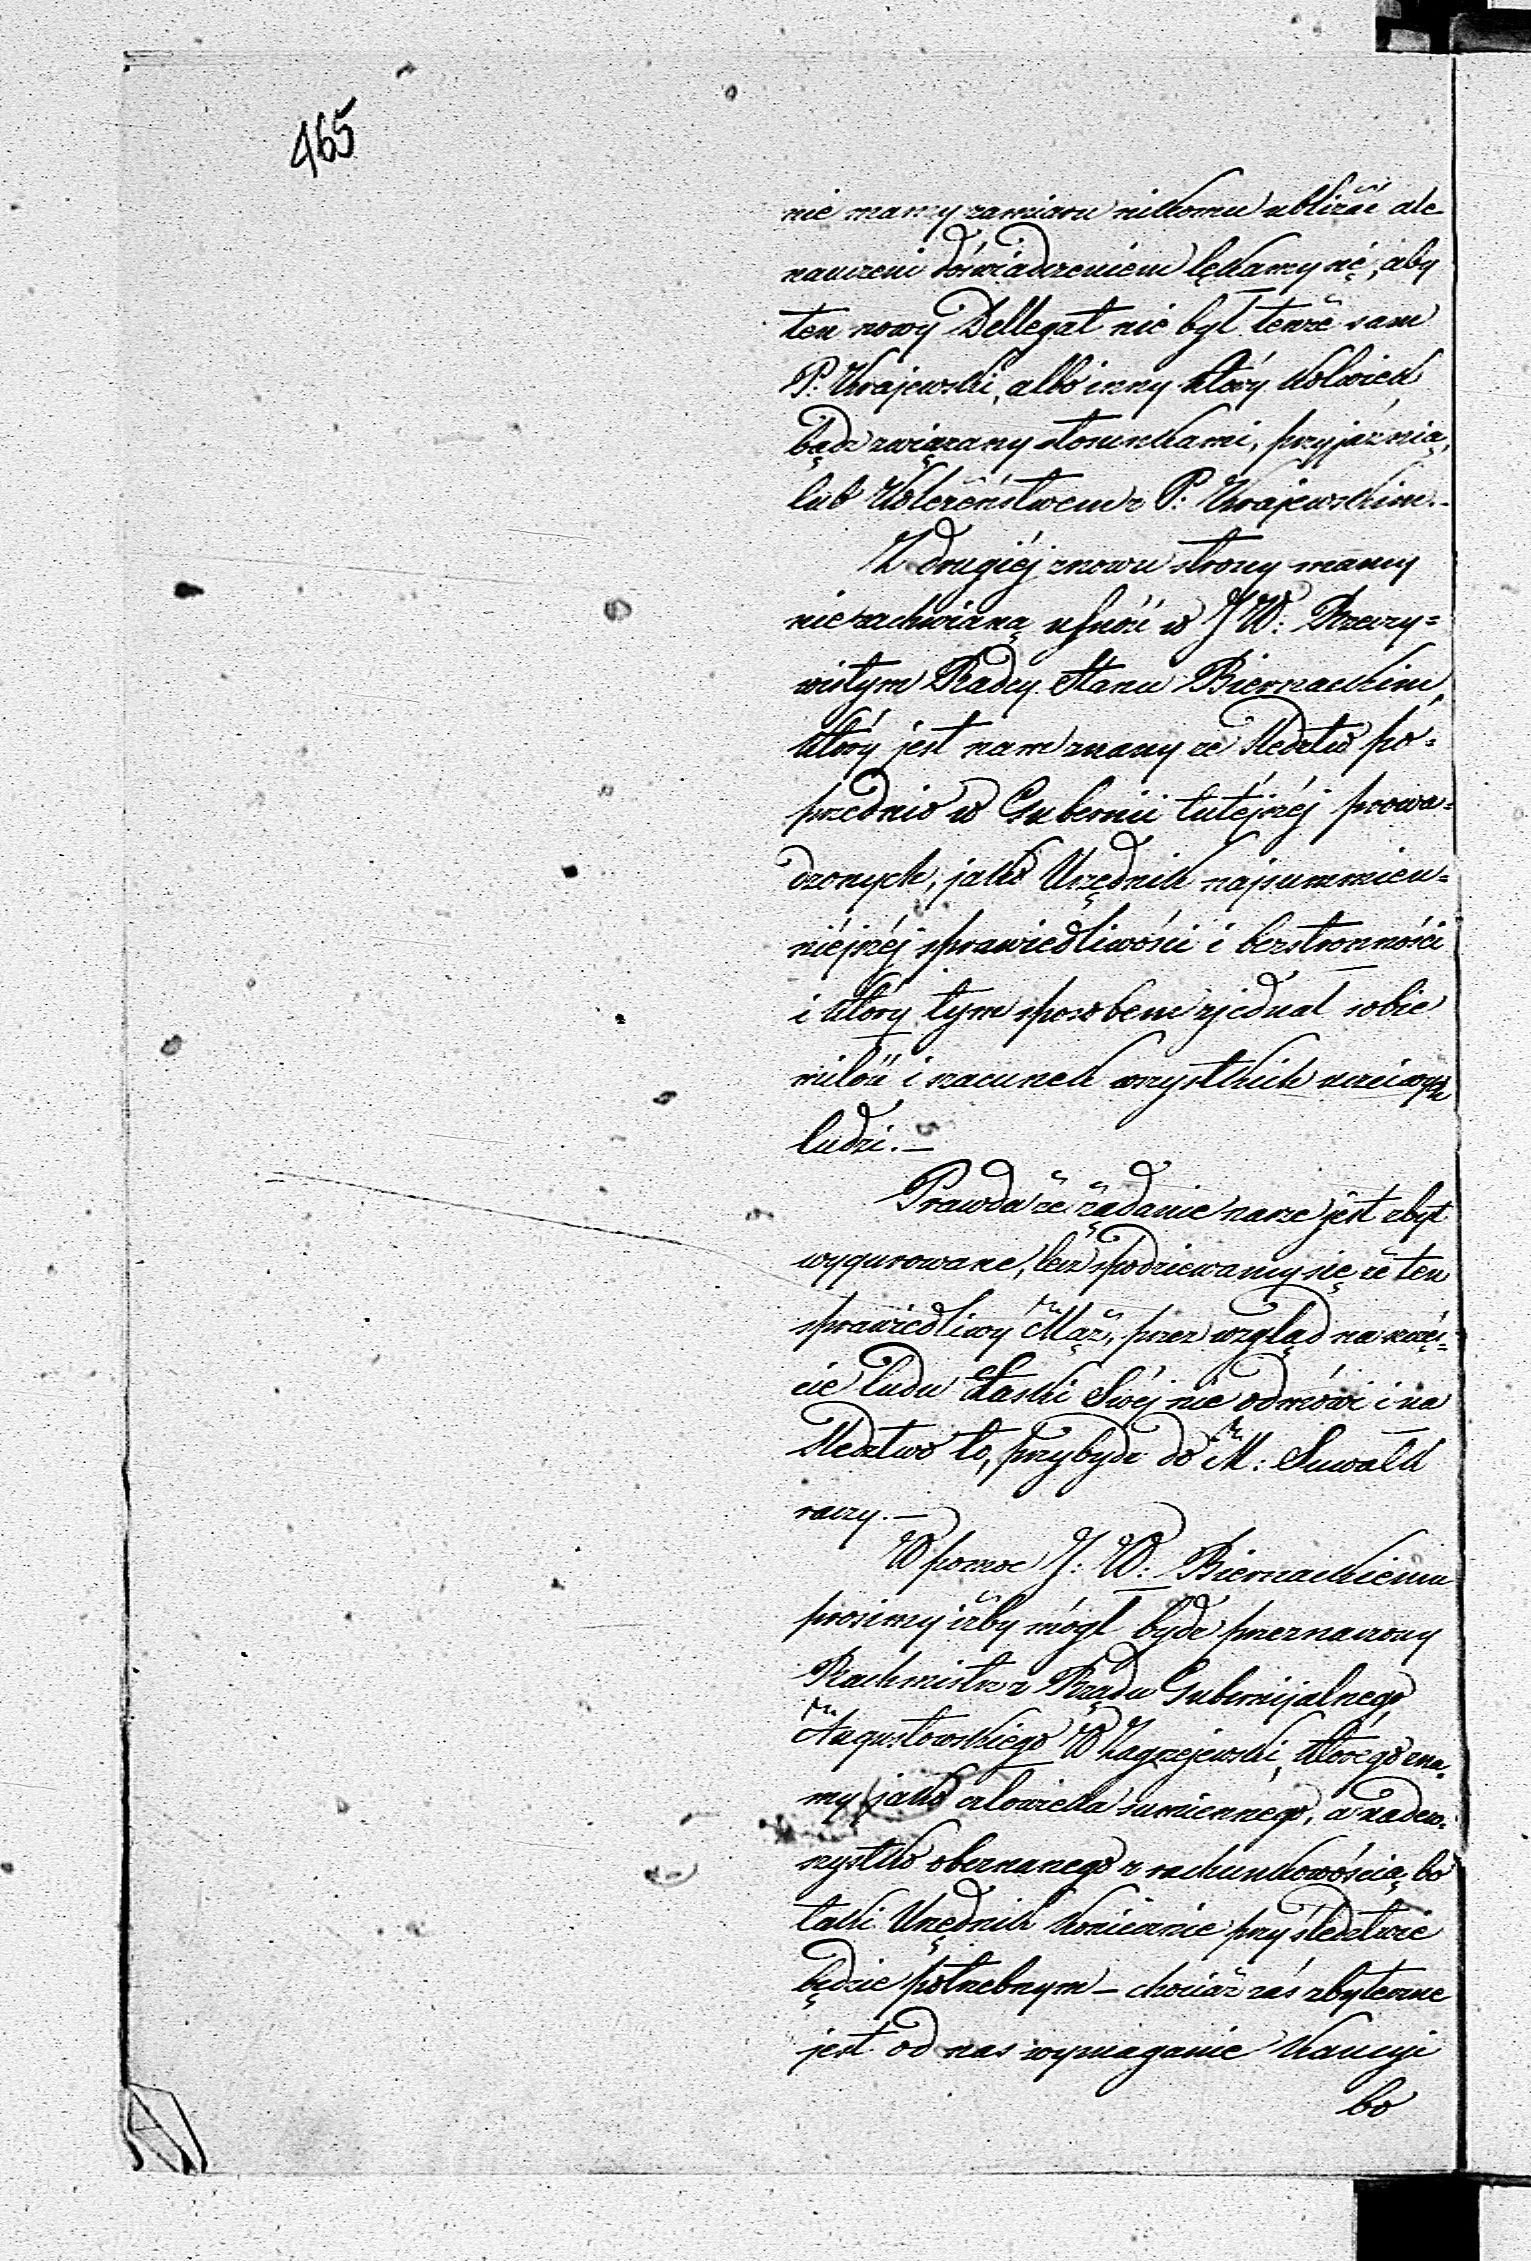 465
nie mamy zamiaru nikomu ubliżać ale
nauczeni doświadczeniem lękamy się, aby
ten nowy Dellegat nie był tenże sam
P. Krajewski, albo inny który kolwiek,
bądź związany stosunkami, przyjaźnią,
lub Koleżeństwem z P. Krajewskim.-
Z drugiéj znowu strony mamy
niezachwianą ufność w J W: Rzeczy=
wistym Radcy Stanu Biernackim,
który jest nam znany ze śledztw po=
przednio w Gubernii tutéjszéj prowa=
dzonych, jako Urzędnik najsummien=
niéjszéj sprawiedliwości i bezstronności
i który tym sposobem zjednał sobie
miłość i szacunek wszystkich uczciwych
ludzi.—
Prawda że żądanie nasze jest zbyt
wygurowane, lecz spodziewamy się że ten
sprawiedliwy Mąż, przez wzgląd na szczę=
cie ludu Łaski Swéj nie odmówi i na
śledztwo to, przybydź do M: Suwałk
raczy.—
W pomoc J: W: Biernackiemu
prosimy iżby mógł bydź przeznaczony
Rachmistrz z Rządu Gubernijalnego
Augustowskiego W Zagrzejewski, którego zna=
my jako człowieka sumiennego, a nadew=
szystko obeznanego z rachunkowością, bo
taki Urzędnik koniecznie przy śledztwie
będzie potrzebnym — chociaż zaś zbyteczne
jest od nas wymaganie Kaucyi
bo